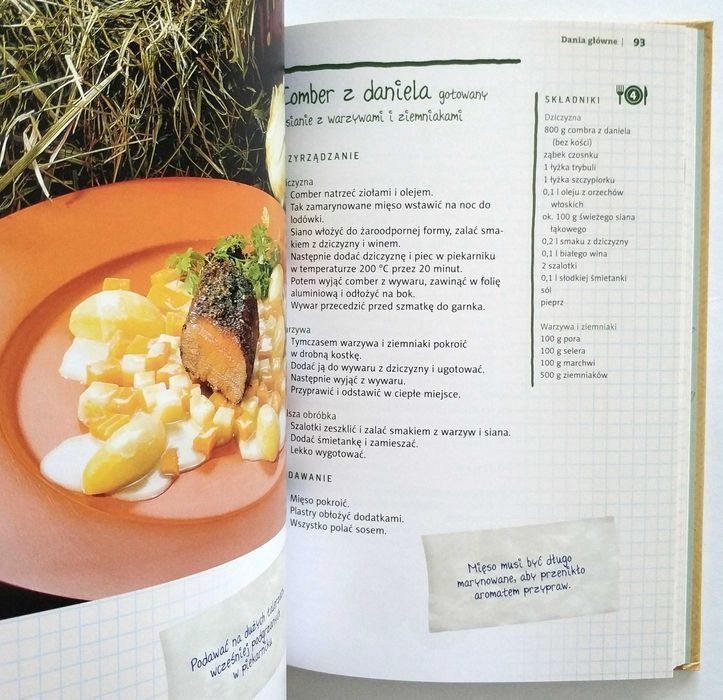 Dania główne | 93
Comber z daniela gotowany
sianie z warzywami i ziemniakami
ZYRZĄDZANIE
iczyzna
Comber natrzeć ziołami i olejem.
Tak zamarynowane mięso wstawić na noc do
lodówki.
Siano włożyć do żaroodpornej formy, zalać sma-
kiem z dziczyzny i winem.
Następnie dodać dziczyznę i piec w piekarniku
w temperaturze 200 °C przez 20 minut.
Potem wyjąć comber z wywaru, zawinąć w folię
aluminiową i odłożyć na bok.
Wywar przecedzić przed szmatkę do garnka.
arzywa
Tymczasem warzywa i ziemniaki pokroić
w drobną kostkę.
Dodać ją do wywaru z dziczyzny i ugotować.
Następnie wyjąć z wywaru.
Przyprawić i odstawić w ciepłe miejsce.
lsza obróbka
Szalotki zeszklić i zalać smakiem z warzyw i siana.
Dodać śmietankę i zamieszać.
Lekko wygotować.
DAWANIE
Mięso pokroić.
Plastry obłożyć dodatkami.
Wszystko polać sosem.
SKŁADNIKI 4
Dziczyzna
800 g combra z daniela
(bez kości)
ząbek czosnku
1 łyżka trybuli
1 łyżka szczypiorku
0,1 l oleju z orzechów
włoskich
ok. 100 g świeżego siana
łąkowego
0,2 l smaku z dziczyzny
0,1 l białego wina
2 szalotki
0,1 l słodkiej śmietanki
sól
pieprz
Warzywa i ziemniaki
100 g pora
100 g selera
100 g marchwi
500 g ziemniaków
Mięso musi być długo
marynowane, aby przenikło
aromatem przypraw.
Podawać na dużych talerzach
wcześniej podgrzanych
w piekarniku